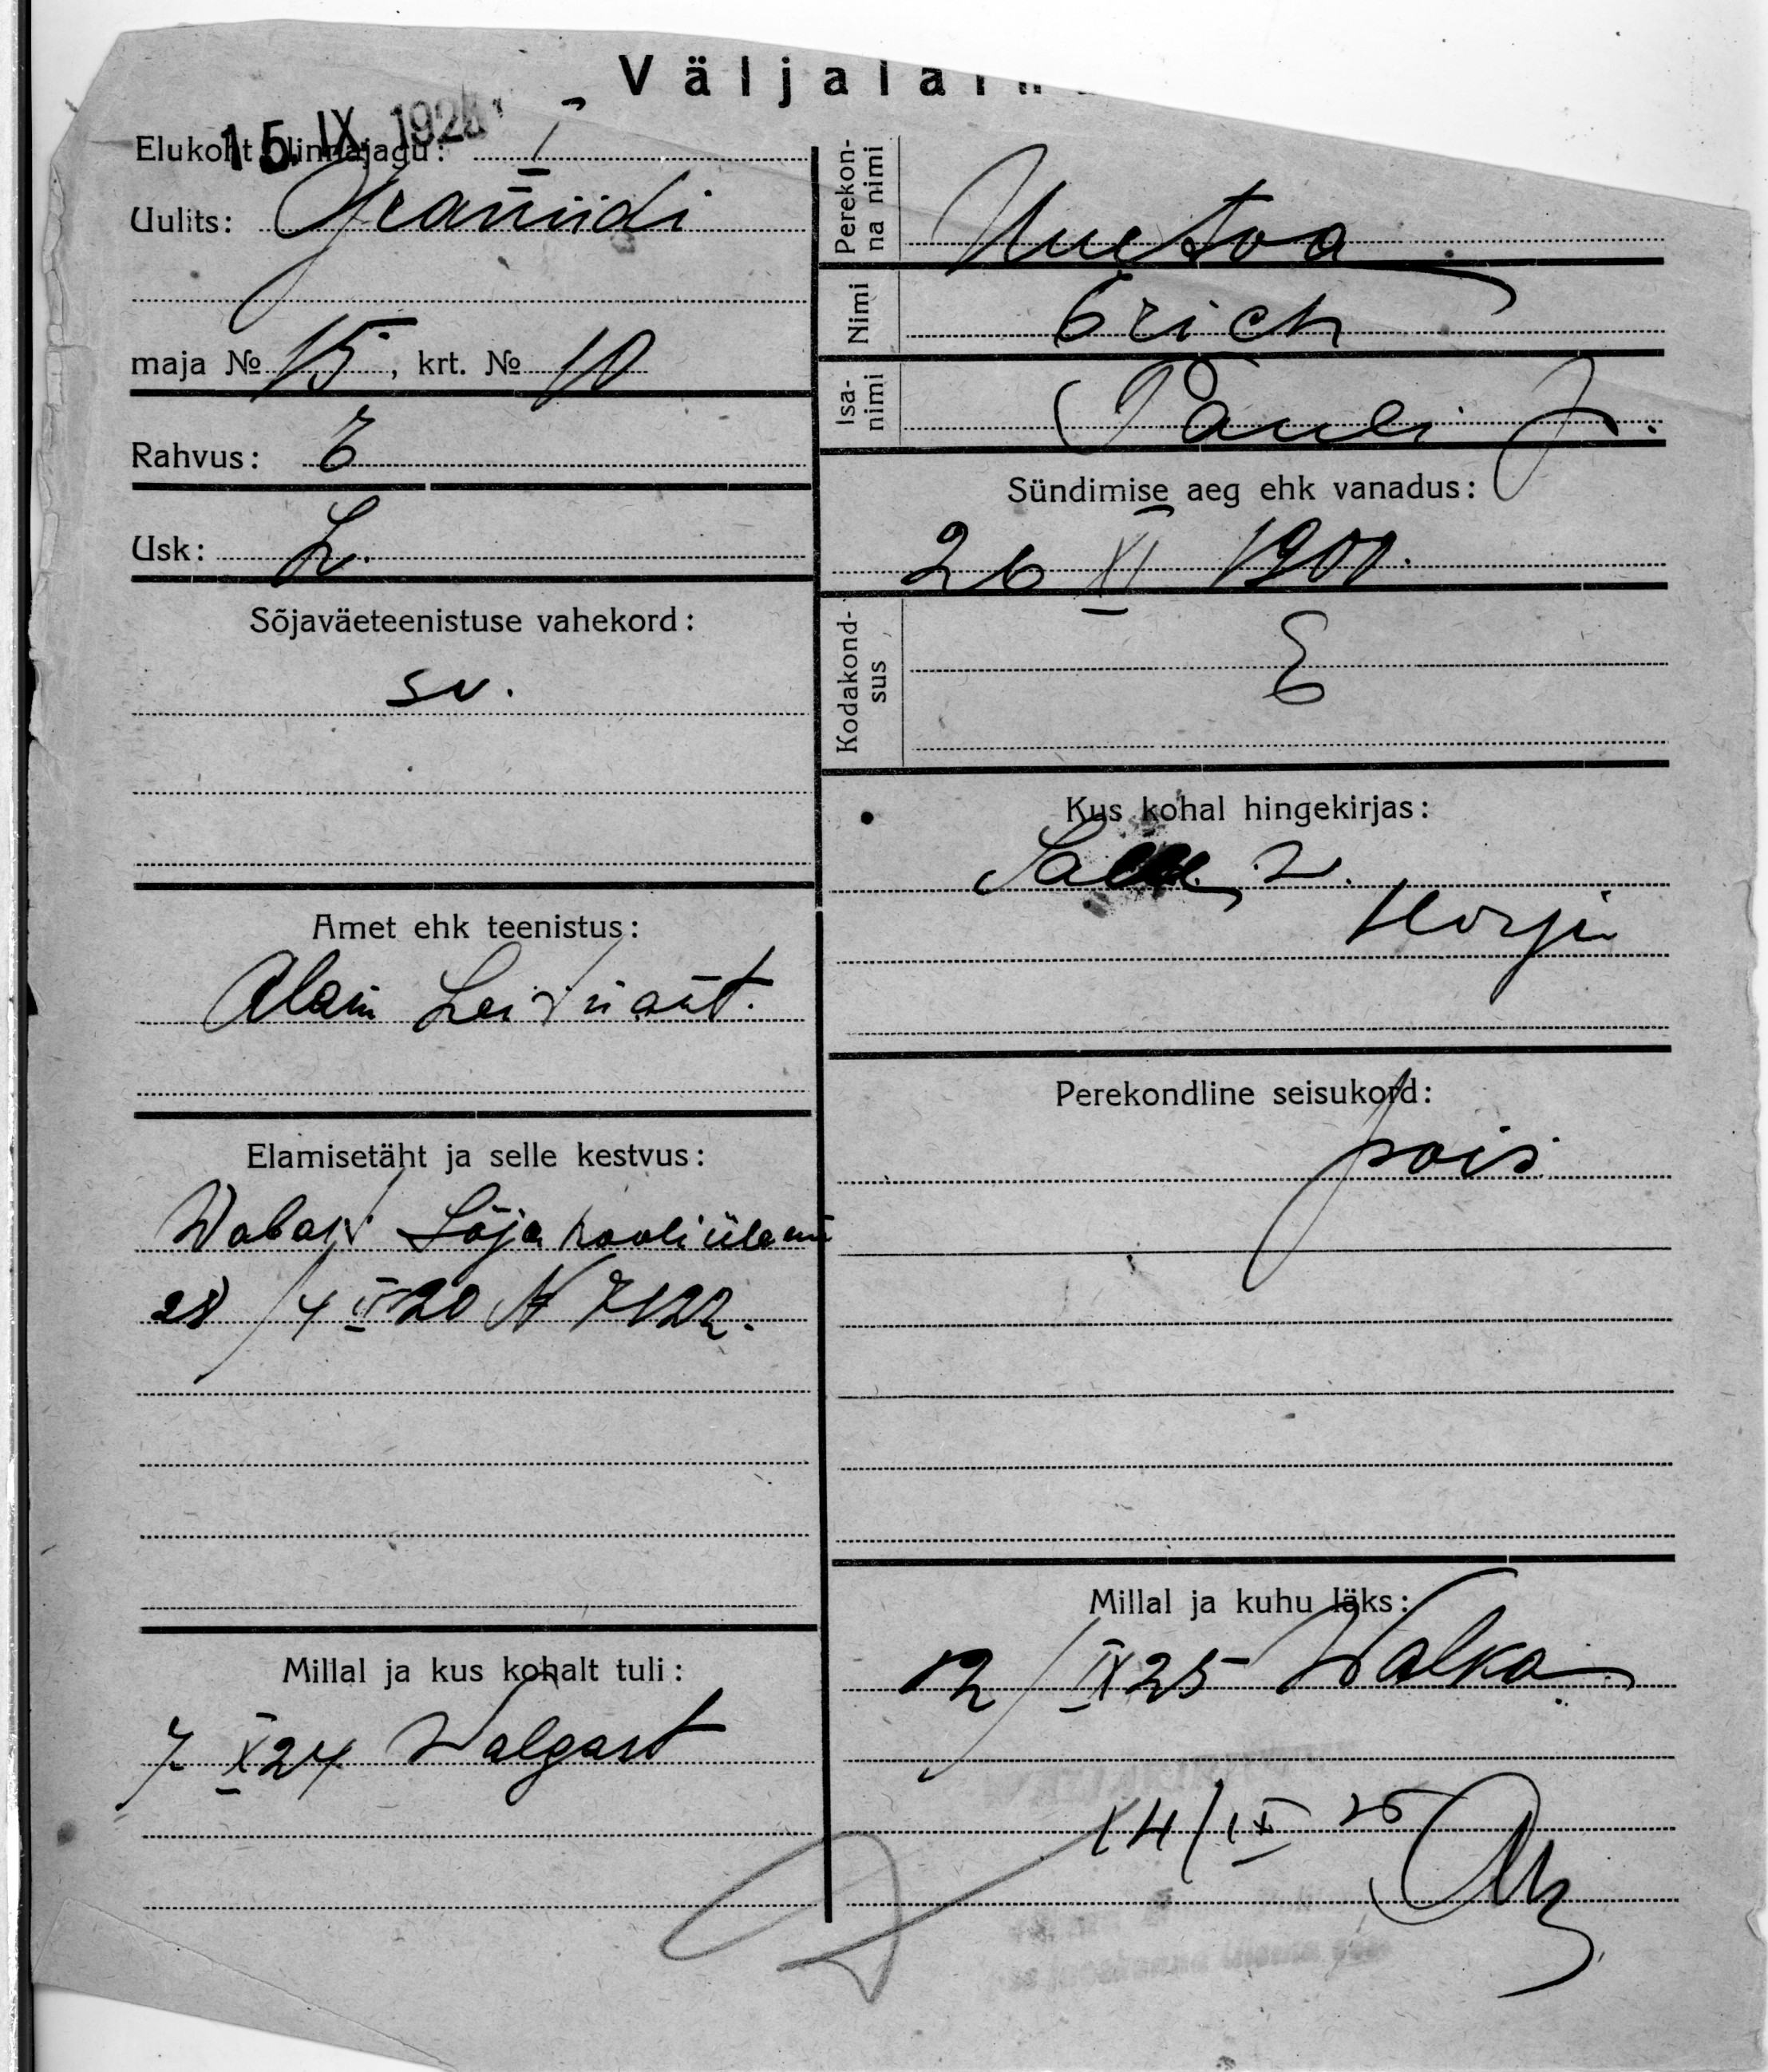 Väljala
15. IX. 192
Elukoht linnajagu: I
Uulits: Graniidi
maja № 15, krt. № 10
Rahvus: E
Usk: L.
Sõjaväeteenistuse vahekord:
sv.
Amet ehk teenistus:
Alam Leitnant.
Elamisetäht ja selle kestvus:
Sõja kooli ülema
Millal ja kus kohalt tuli:
7 X 24 Walgast
Perekon-
na nimi
Uuetoa
Nimi Erich
Isa-
nimi
Pauli p.
Sündimise aeg ehk vanadus:
26 XI 1900.
Kodakond-
sus
E
Kus kohal hingekirjas:
Perekondline seisukord:
pois
Millal ja kuhu läks:
12/IX 25 Walka
14/IX 25